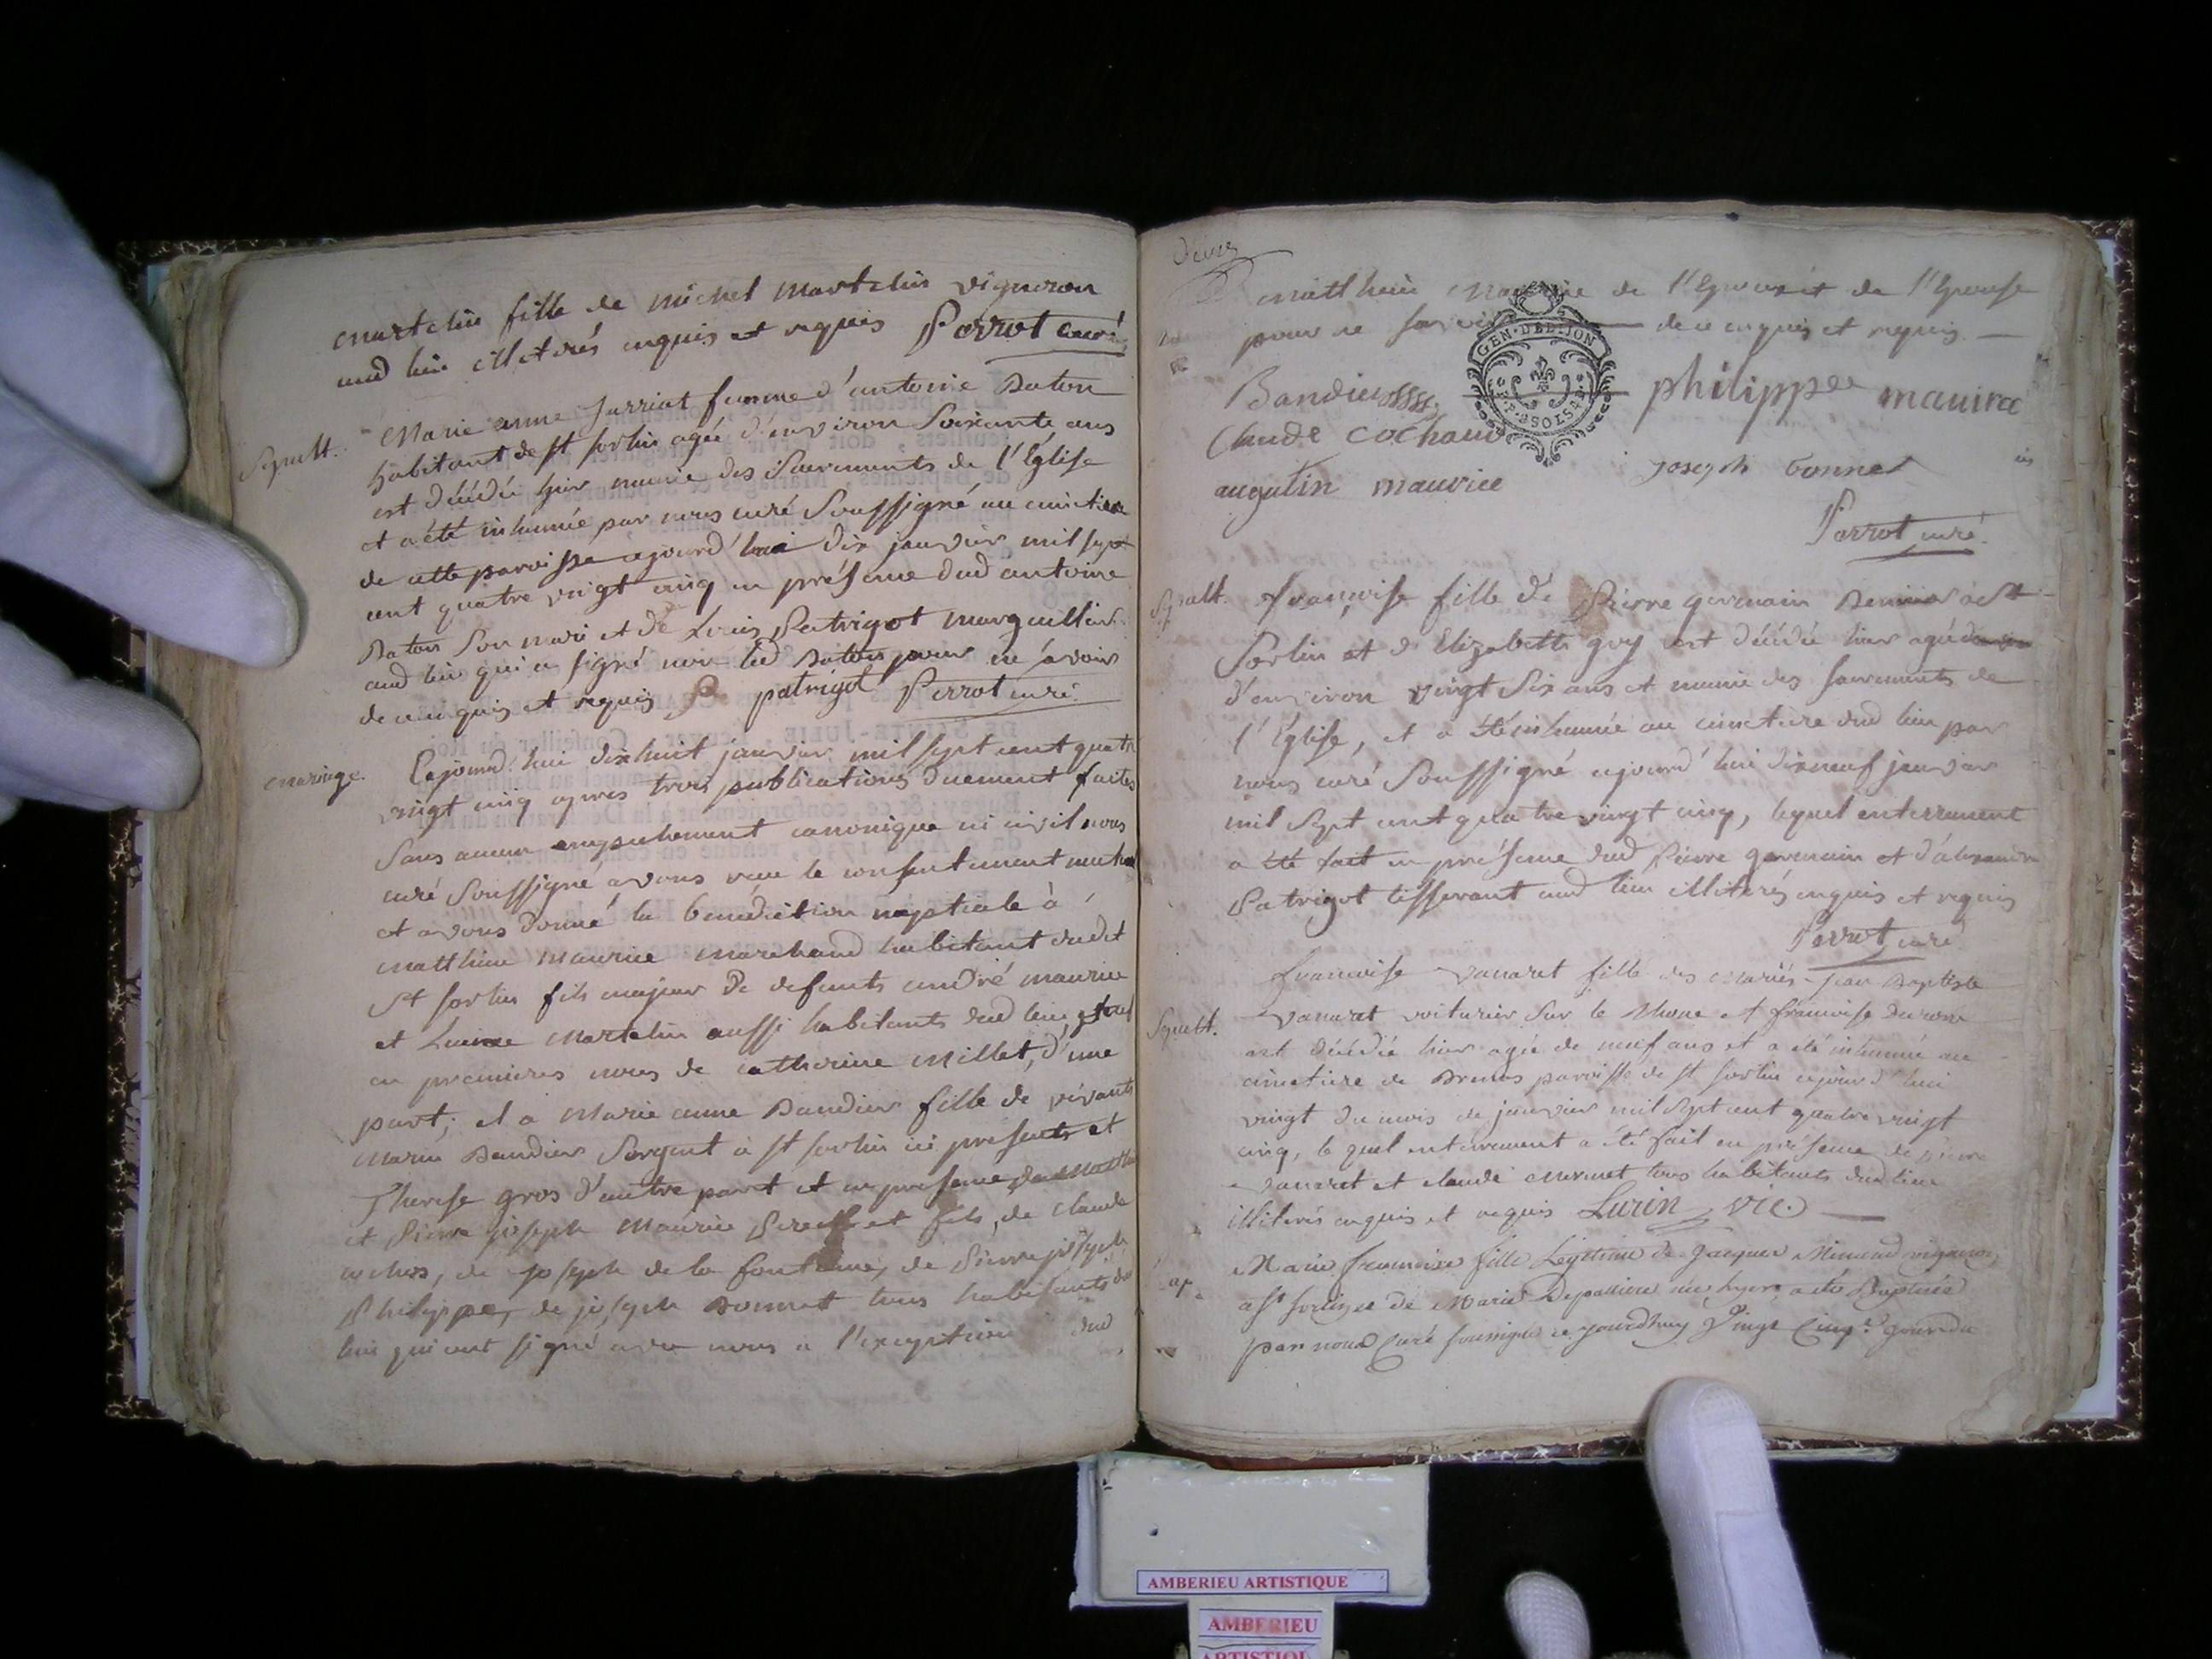 martelin fille de michel martelin vigneron
aud lieu illiterés enquis et requis Perrot curé
Sepult.
Marie anne Jurriat femme d'antoine Baton
habitant de st sorlin agée d'environ Soixante ans
est décédée hier munie des Sacrements de l'Église
et a été inhumée par nous curé Soussigné au cimetiere
de cette paroisse ajourd'hui dix janvier mil sept
cent quatre vingt cinq en présence dud antoine
Baton Son mari et de Louis Patrigot marguillier
aud lieu qui a signé non led Baton pour ne savoir
de ce enquis et requis patrigot Perrot curé
mariage.
Cejourd'hui dixhuit janvier mil sept cent quatre
vingt cinq apres trois publications duement faites
Sans aucun empechement canonique ni civil nous
curé Soussigné avons reçu le consentement mutuel
et avons donné la benédiction nuptiale à
matthieu Maurice marchand habitant dudit
st sorlin fils majeur de defunts andré maurice
et Martelin aussi habitants dud lieu, et veuf
en premieres noces de catherine Millet, d'une
part, et a Marie anne Bandier fille de vivants
Marin Bandier Sergent à st sorlin ici presents et
Therese gros d'autre part et en presence
et Pierre joseph Maurice et fils, de claude
cochos, de joseph de la fontaine, de Pierre joseph
Philippe, de joseph Bonnet tous habitants du
lieu qui ont signé avec nous a l'exception dud
matthieu Maurice de l'Epoux et de l'Epouse
pour ne savoir de ce enquis et requis
GEN. DE DIJON
Bandier philippe maurice
Claude cochaud
augutin maurice joseph bonnet
Perrot curé.
Sepult.
françoise fille de Pierre germain à St
Sorlin et d'Elizabeth guy est décédée hier agée
d'environ vingt Six ans et munie des sacrements de
l'Église, et a été inhumée au cimetiere dud lieu par
nous curé Soussigné ajourd'hui dixneuf janvier
mil sept cent quatre vingt cinq, lequel enterrement
a été fait en présence dud Pierre germain et d'alexandre
Patrigot tisserant aud lieu illiterés enquis et requis
Perrot curé
Sepult.
francoise vanaret fille des mariés jean Baptiste
vanaret voiturier Sur le Rhone et françoise
est décédée hier agée de neuf ans et a été inhumée au
cimetiere de paroisse de st sorlin ajourd'hui
vingt du mois de janvier mil Sept cent quatre vingt
cinq, lequel enterrement a été fait en présence de pierre
vanaret et claude mermet tous habitants dud lieu
illiterés enquis et requis Lurin vic.
Bap.
Marie francoise fille Legitime de Jacques vigneron
a st sorlin et de Marie Depalliere née hyere a été Baptisée
par nous Curé soussigné ce jourdhuy Vingt Cinq.e jour du
AMBERIEU ARTISTIQUE
AMBERIEU
ARTISTIQUE